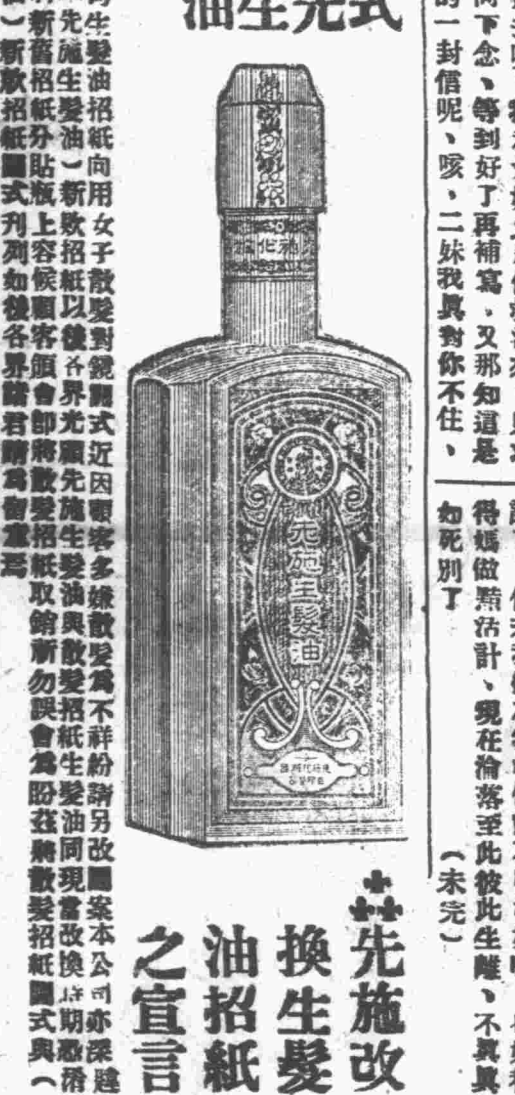 下念、等到好了再補寫、又那知這是
的一封信呢、咳、二妹我眞對你不住、
得媽做點活計、現在淪落至此彼此生離、不
如死別了
(未完)
式先生油
先施生髮油
先施改
換生髮
油招紙
之宣言
生髮油招紙向用女子散髮對鏡圖式近因顧客多嫌散髮爲不祥紛請另改圖案本公司亦深韙
先施生髮油)新欵招紙以後各界光顧先施生髮油與散髮招紙生髮油同現當改換時期恐淆
新舊招紙分貼瓶上容候顧客領會即將散髮招紙取銷祈勿誤會爲盼茲將散髮招紙圖式與(
)新欵招紙圖式刊列如後各界諸君請爲留意焉